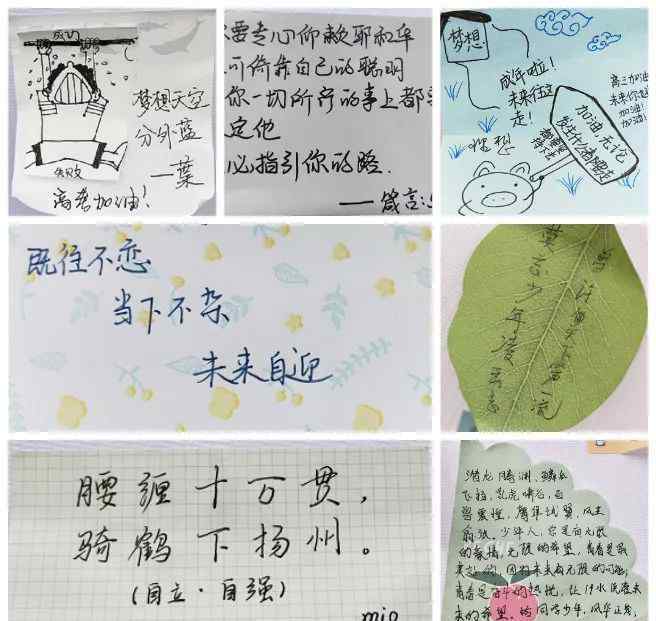 成功
梦想天空
分外蓝
一葉
失败
高考加油！
要专心仰赖耶和华
可倚靠自己的聪明
你一切所行的事上都要
定他
必指引你的路.
——箴言:
梦想
成年啦！
未来在这
走！
高三加油
加油！
加油！
加油，无论
既往不恋
当下不杂
未来自迎
莫言少年凌云志
腰缠十万贯，
骑鹤下扬州。
(自立·自强)
mio
潜龙腾渊，鳞爪
飞扬，乳虎啸谷，百
兽震惶，鹰隼试翼，风尘
翕张。少年人，你是有无限
的豪情，无限的希望，青春是最
因为未来有无限的可能，
青春是百年的热忱，让汗水浇灌未
来的希望。恰同学少年，风华正茂，